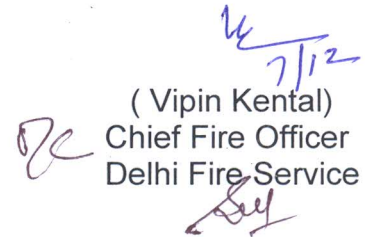 7/12
( Vipin Kental)
Chief Fire Officer
Delhi Fire Service